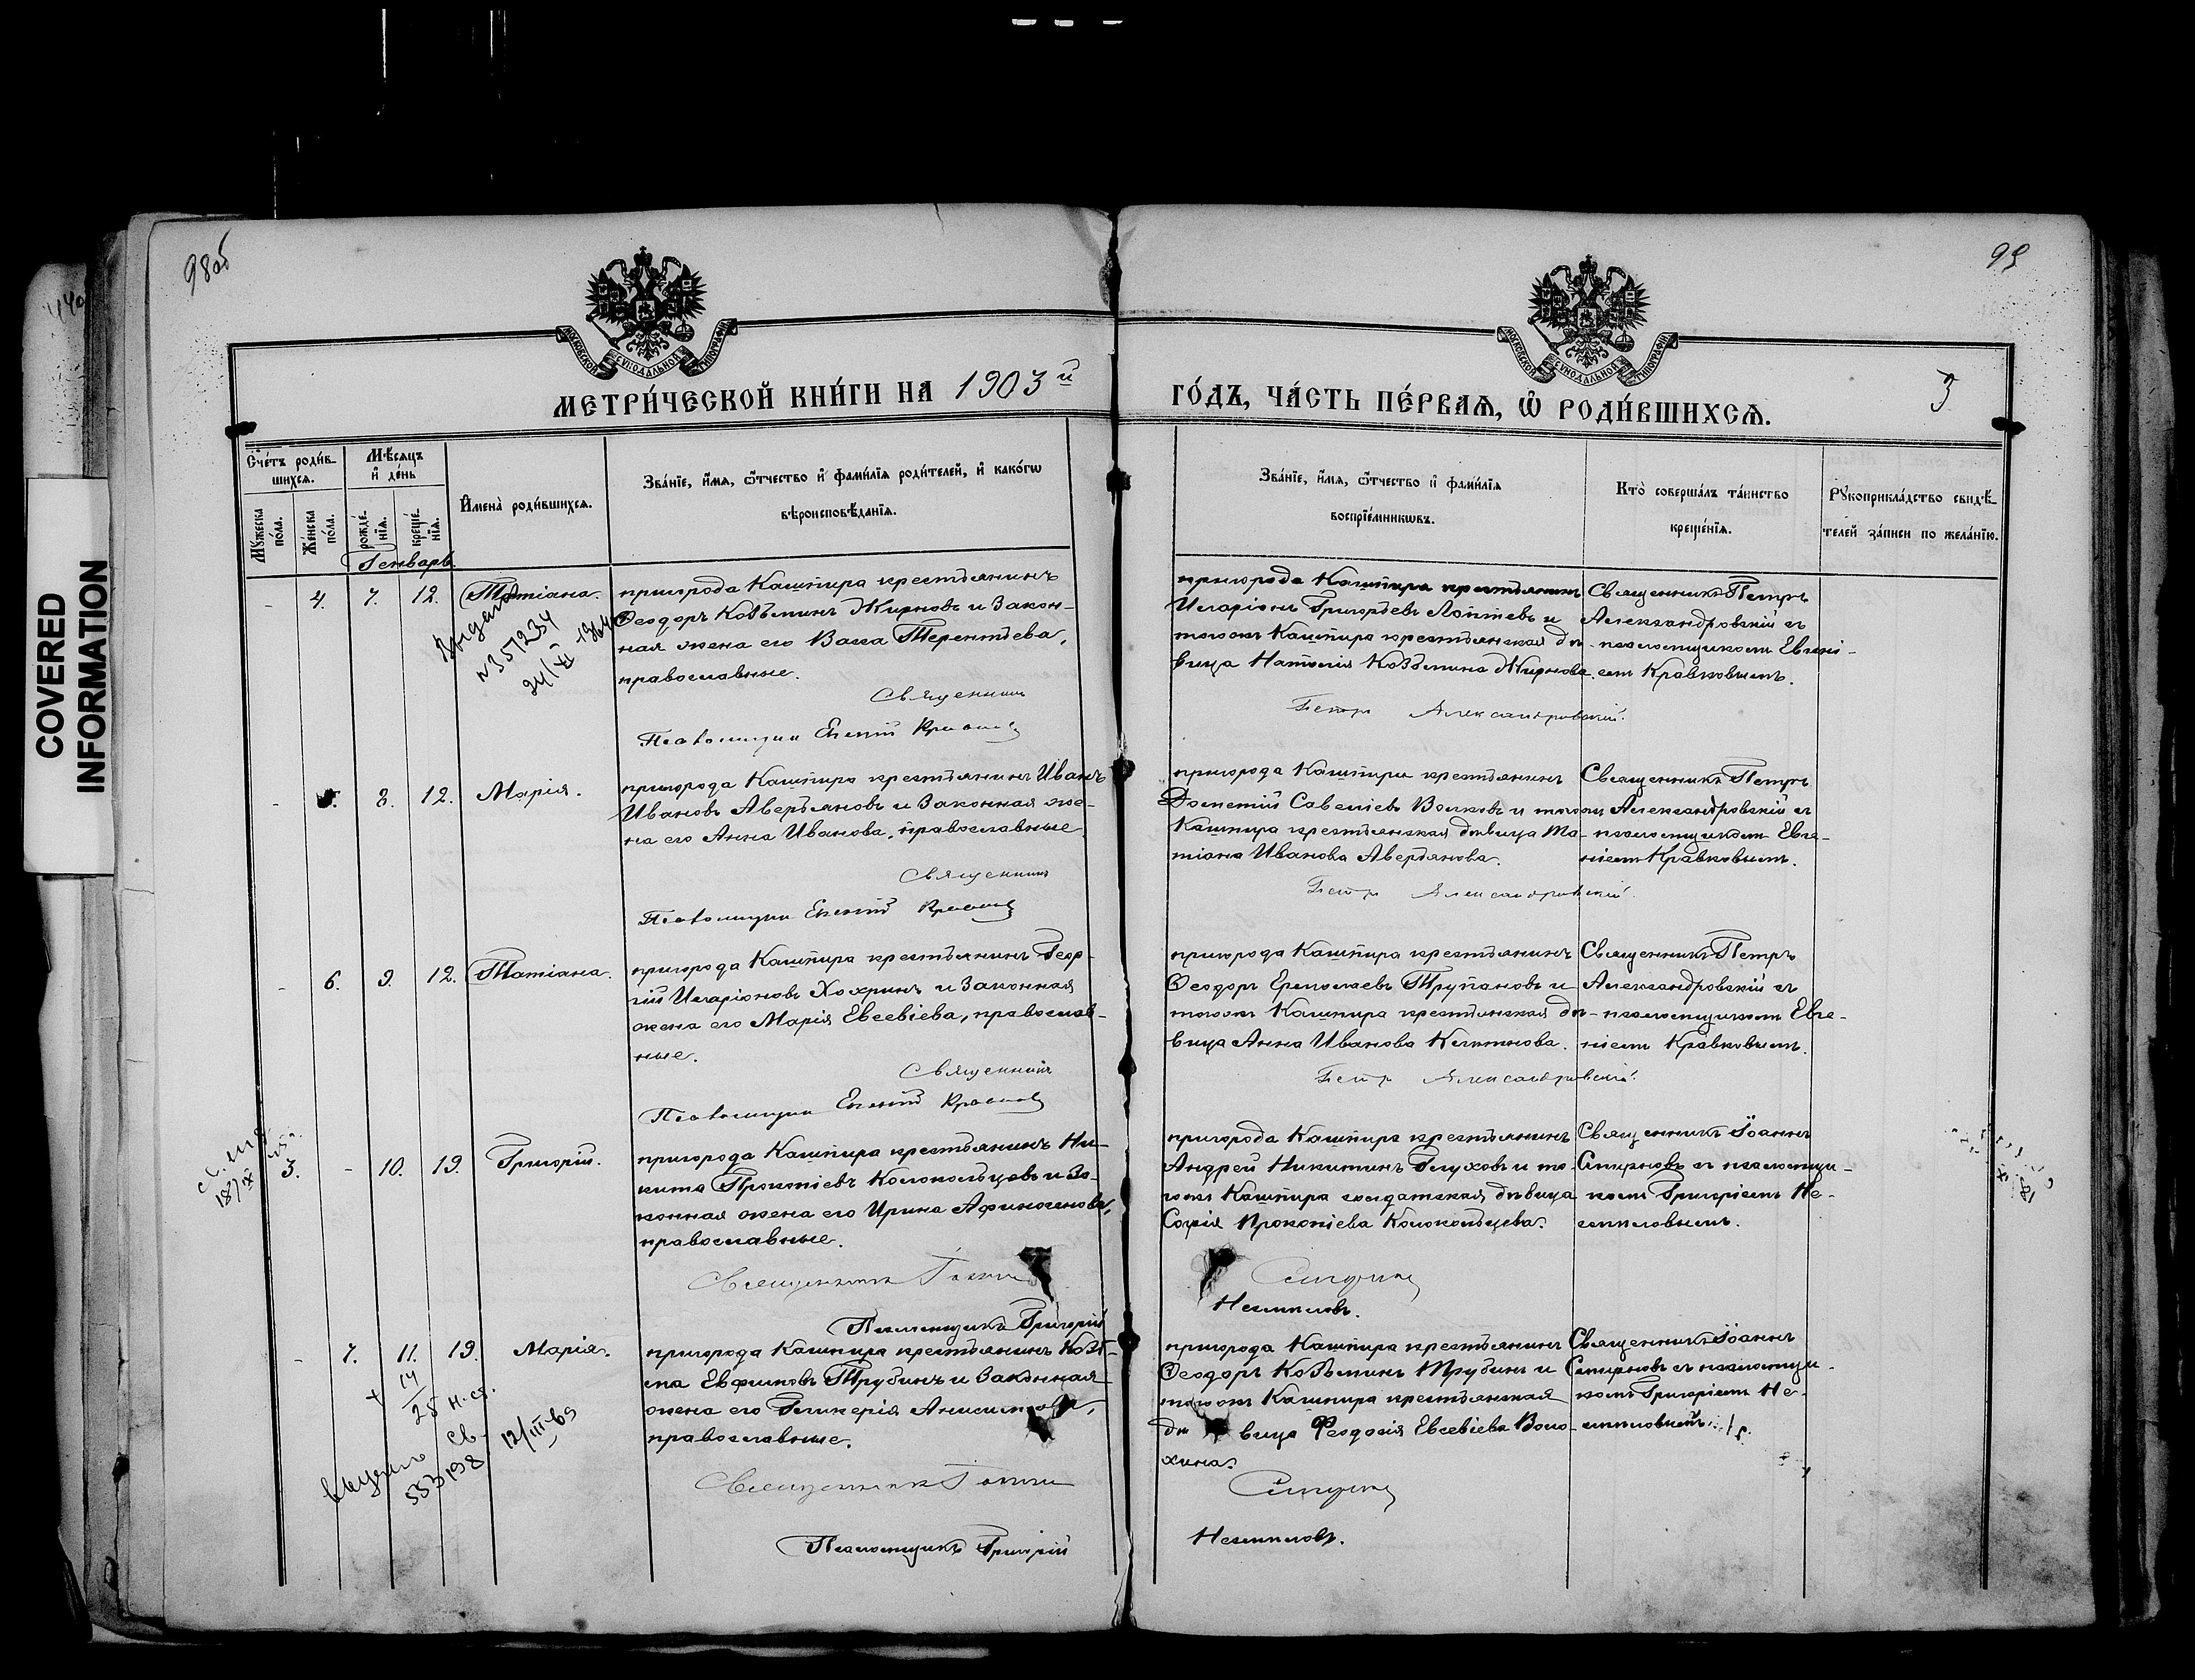 COVERED
INFORMATION
98об
99
МОСКОВСКОЙ СѴНОДАЛЬНОЙ ТИПОГРАФІИ
МОСКОВСКОЙ СѴНОДАЛЬНОЙ ТИПОГРАФІИ
МЕТРИ́ЧЕСКОЙ КНИ́ГИ НА 1903й
ГО́ДЪ, ЧА́СТЬ ПЕ́РВАѦ, Ѽ РОДИ́ВШИХСѦ.
3
Сче́тъ роди́в-
шихсѧ.
Мѣ́сѧцъ
и҆ де́нь
Мꙋ́жеска
по́ла.
Же́нска
по́ла.
рожде́-
нїѧ.
креще́-
нїѧ.
И҆мена̀ роди́вшихсѧ.
Зва́нїе, и҆́мѧ, ѻ҆́тчество и҆ фами́лїѧ роди́телей, и҆ како́гѡ
вѣроисповѣ́данїѧ.
Зва́нїе, и҆́мѧ, ѻ҆́тчество и҆ фами́лїѧ
воспрїе́мникѡвъ.
Кто̀ соверша́лъ та́инство
креще́нїѧ.
Рꙋкоприкла́дство свидѣ́-
телей за́писи по жела́нїю.
Генварь
- 4. 7. 12. Татіана.
Выдано
№ 351234
24/XI 196
пригорода Кашпира крестьянинъ
Ѳеодоръ Козьминъ Жирновъ и закон-
ная жена его Васса Терентьева,
православные.
Священникъ
Псаломщикъ Евгеній Кравковъ
пригорода Кашпира крестьянинъ
Иларіонъ Григорьевъ Лаптевъ и
тогоже Кашпира крестьянская дѣ-
вица Наталія Козьмина Жирнова.
Петръ Александровскій.
Священникъ Петръ
Александровскій съ
псаломщикомъ Евгені-
емъ Кравковымъ.
- 5. 8. 12. Марія.
пригорода Кашпира крестьянинъ Иванъ
Ивановъ Аверьяновъ и законная же-
на его Анна Иванова, православные.
Священникъ
Псаломщикъ Евгеній Кравковъ
пригорода Кашпира крестьянинъ
Дометій Савеліевъ Волковъ и тогоже
Кашпира крестьянская дѣвица Та-
тіана Иванова Аверьянова.
Петръ Александровскій.
Священникъ Петръ
Александровскій съ
псаломщикомъ Евге-
ніемъ Кравковымъ.
- 6. 9. 12. Татіана.
пригорода Кашпира крестьянинъ Геор-
гій Иларіоновъ Хохринъ и законная
жена его Марія Евсевіева, православ-
ные.
Священникъ
Псаломщикъ Евгеній Кравковъ
пригорода Кашпира крестьянинъ
Ѳеодоръ Ермолаевъ Трупановъ и
тогоже Кашпира крестьянская дѣ-
вица Анна Иванова
Петръ Александровскій.
Священникъ Петръ
Александровскій съ
псаломщикомъ Евге-
ніемъ Кравковымъ.
3. - 10. 19. Григорій.
пригорода Кашпира крестьянинъ Ни-
кита Прокопіевъ Колокольцовъ и за-
конная жена его Ирина Афиногенова,
православные.
Священникъ Іоаннъ
Псаломщикъ Григорій
пригорода Кашпира крестьянинъ
Андрей Никитинъ Глуховъ и то-
гоже Кашпира солдатская дѣвица
Софія Прокопіева Колокольцева.
Смирновъ
Несмѣловъ.
Священникъ Іоаннъ
Смирновъ съ псаломщи-
комъ Григоріемъ Не-
смѣловымъ.
- 7. 11. 19. Марія.
+ 14
25 н.ст.
св.
553198
12/III-69
пригорода Кашпира крестьянинъ Козь-
ма Евфимовъ Трубинъ и законная
жена его Гликерія Анисимова,
православные.
Священникъ Іоаннъ
Псаломщикъ Григорій
пригорода Кашпира крестьянинъ
Ѳеодоръ Козьминъ Трубинъ и
тогоже Кашпира крестьянская
дѣвица Ѳеодосія Евсевіева Воло-
хина.
Смирновъ
Несмѣловъ.
Священникъ Іоаннъ
Смирновъ съ псаломщи-
комъ Григоріемъ Не-
смѣловымъ.